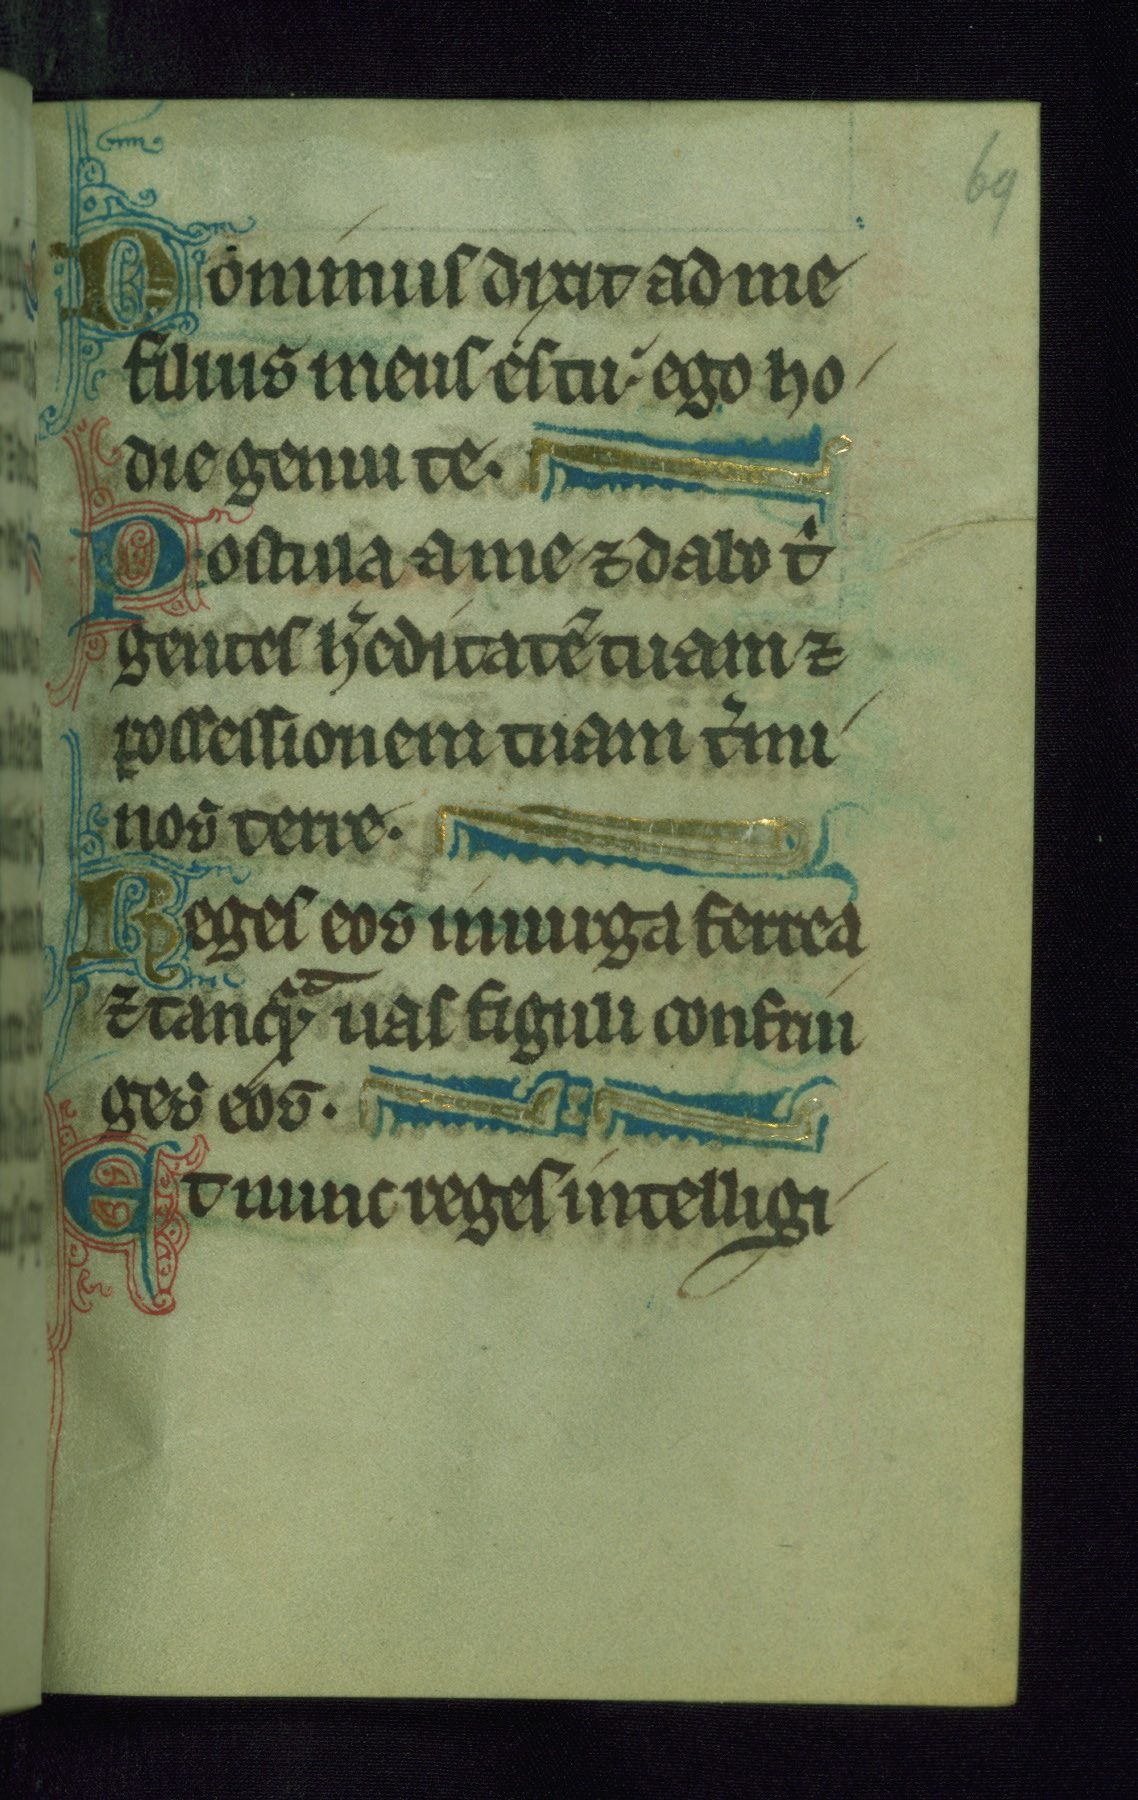 69
Dominus dixit ad me
filius meus es tu· ego ho
die genui te.
Postula a me ⁊ dabo t̂
gentes h̓editatē tuam ⁊
possessionem tuam t̓mi
nos terre.
Reges eos in uirga ferrea
⁊ tanqͣ uas figuli confrin
ges eos.
Et nunc reges intelligi